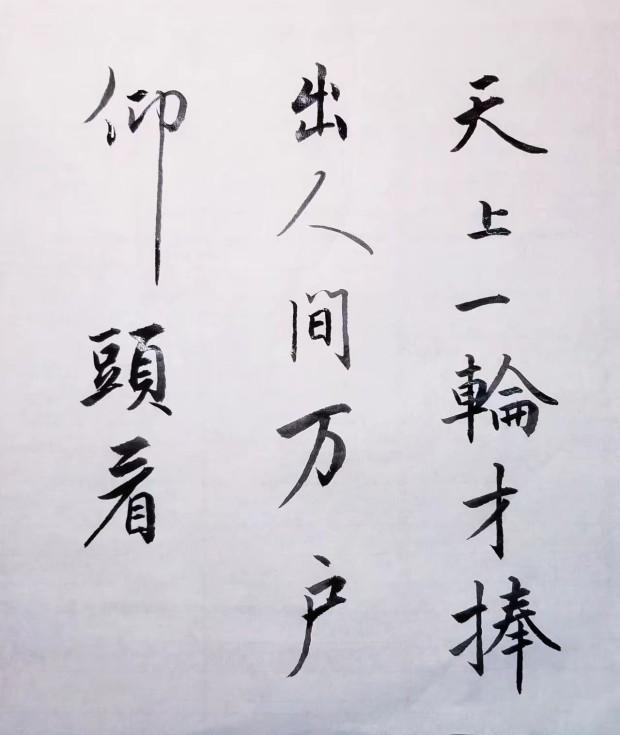 天上一輪才捧
出人间万户
仰頭看